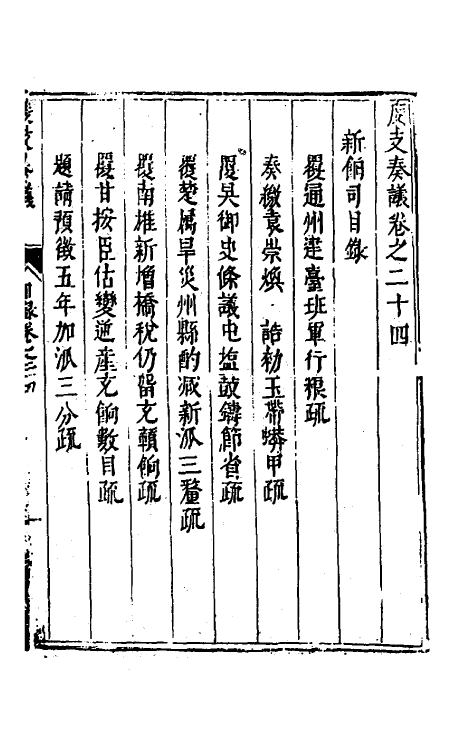 度支奏議卷之二十四
新餉司目錄
覆通州建臺班軍行糧疏
奏繳袁崇煥 誥勑玉帶蟒甲疏
覆吳御史條議屯塩鼓鑄節省疏
覆楚屬旱災州縣酌减新派三釐疏
覆南雄新增橋稅仍留充贛餉疏
覆甘按臣估變逆產充餉數目疏
題請預徵五年加派三分疏
度支奏議
目錄卷之二十四